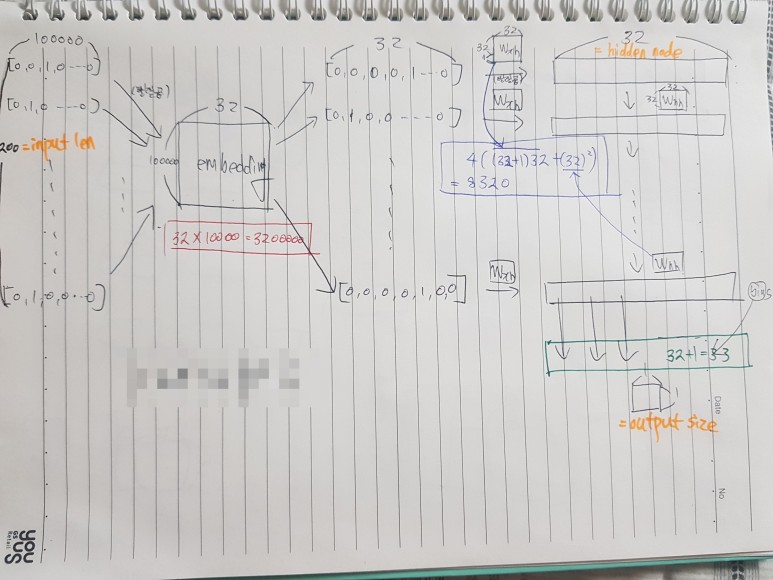 100000
[0,0,1,0---0]
[0,1,0 ---0]
200 =input len
[0,1,0,0---0]
32
100000
embedding
32 × 10000 = 3200000
32
[0,0,0,0,1---0]
[0,1,0,0 ----0]
[0,0,0,0,1,0,0]
32
32
Wxh
Wxh
4((32+1)32+(32)²)
= 8320
Wxh
32
= hidden node
32
32
Whh
Whh
bias
32+1=33
1
1
=output size
Date
No
YOU
US
Retail